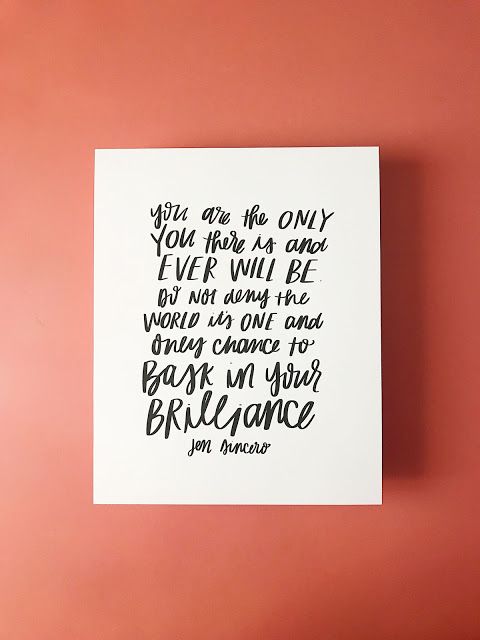 you are the ONLY
YOU there is and
EVER WILL BE.
DO NOT deny the
WORLD it's ONE and
only chance to
BASK in your
BRilliance
Jen Sincero